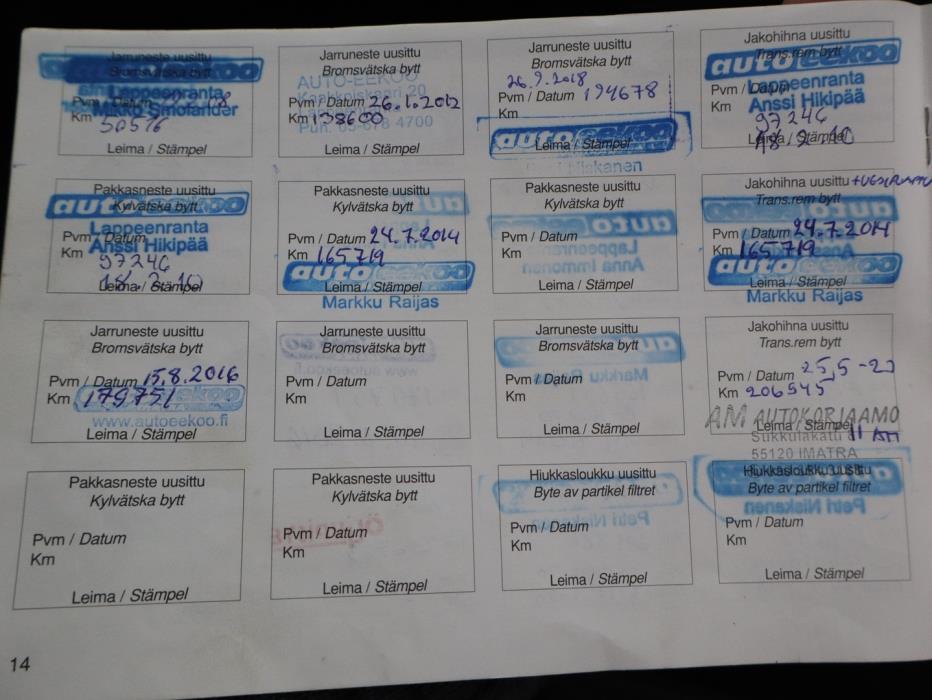 Jarruneste uusittu
Bromsvätska bytt
autoeekoo
Lappeenranta
Pvm / Datum
Mikko Smolander
Km 50576
Leima / Stämpel
Jarruneste uusittu
Bromsvätska bytt
AUTO-EEKOO
Pvm / Datum 26.1.2012
Km 138600
4700
Leima / Stämpel
Jarruneste uusittu
Bromsvätska bytt
26.9.2018
Pvm / Datum 194678
Km
autoeekoo
Leima / Stämpel
Jakohihna uusittu
Trans.rem bytt
autoeekoo
Lappeenranta
Pvm / Datum
Anssi Hikipää
Km
97246
18.2.10
Leima / Stämpel
Pakkasneste uusittu
Kylvätska bytt
autoeekoo
Lappeenranta
Pvm / Datum
Anssi Hikipää
Km
97246
18.2.10
Leima / Stämpel
Pakkasneste uusittu
Kylvätska bytt
Pvm / Datum 24.7.2014
Km 165719
autoeekoo
Leima / Stämpel
Markku Raijas
Pakkasneste uusittu
Kylvätska bytt
Pvm / Datum
Km
Leima / Stämpel
Jakohihna uusittu
Trans.rem bytt
Pvm / Datum 24.7.2014
Km 165719
autoeekoo
Leima / Stämpel
Markku Raijas
Jarruneste uusittu
Bromsvätska bytt
Pvm / Datum 15.8.2016
Km 179751
autoeekoo
www.autoeekoo.fi
Leima / Stämpel
Jarruneste uusittu
Bromsvätska bytt
Pvm / Datum
Km
Leima / Stämpel
Jarruneste uusittu
Bromsvätska bytt
Pvm / Datum
Km
Leima / Stämpel
Jakohihna uusittu
Trans.rem bytt
Pvm / Datum 25,5 -20
Km 206545
AM AUTOKORJAAMO
Leima / Stämpel
Sukkulakatu 11 A11
55120 IMATRA
Pakkasneste uusittu
Kylvätska bytt
Pvm / Datum
Km
Leima / Stämpel
Pakkasneste uusittu
Kylvätska bytt
Pvm / Datum
Km
Leima / Stämpel
Hiukkasloukku uusittu
Byte av partikel filtret
Pvm / Datum
Km
Leima / Stämpel
Hiukkasloukku uusittu
Byte av partikel filtret
Pvm / Datum
Km
Leima / Stämpel
14